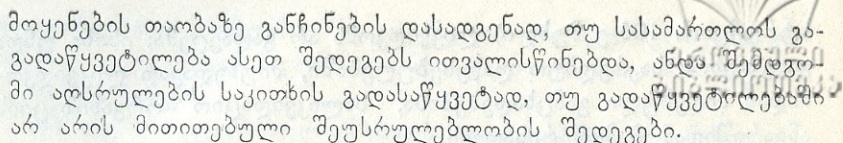 მოყენების თაობაზე განჩინების დასადგენად, თუ სასამართლოს გა-
გადაწყვეტილება ასეთ შედეგებს ითვალისწინებდა, ანდა შემდგო-
მი აღსრულების საკითხის გადასაწყვეტად, თუ გადაწყვეტილებაში
არ არის მითითებული შეუსრულებლობის შედეგები.